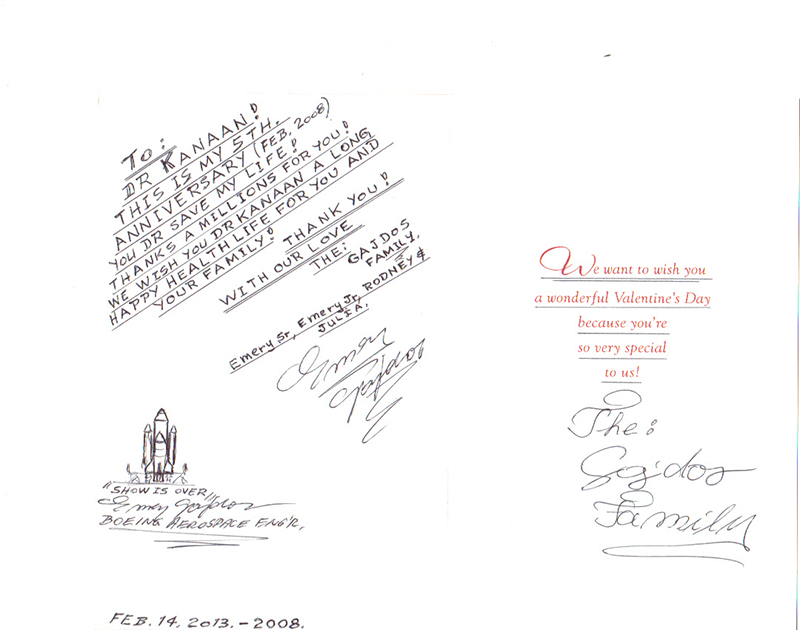 To:
DR KANAAN!
THIS IS MY 5TH.
ANNIVERSARY (FEB. 2008)
YOU DR SAVE MY LIFE!
THANKS A MILLIONS FOR YOU!
WE WISH YOU DR KANAAN A LONG
HAPPY HEALTH LIFE FOR YOU AND
YOUR FAMILY! THANK YOU!
WITH OUR LOVE
THE: GAJDOS
FAMILY,
Emery Sr, Emery Jr, RODNEY &
JULIA.
Emery
Gajdos
"SHOW IS OVER"
Emery Gajdos
BOEING AEROSPACE ENG'R.
FEB. 14. 2013. - 2008.
We want to wish you
a wonderful Valentine's Day
because you're
so very special
to us!
The:
Gajdos
Family